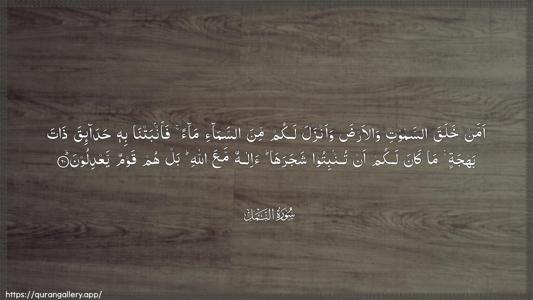 اَمَّنۡ خَلَقَ السَّمٰوٰتِ وَالۡاَرۡضَ وَاَنۡزَلَ لَـكُمۡ مِّنَ السَّمَآءِ مَآءً‌ ۚ فَاَنۡۢبَتۡنَا بِهٖ حَدَآٮِٕقَ ذَاتَ
بَهۡجَةٍ‌ ۚ مَا كَانَ لَـكُمۡ اَنۡ تُـنۡۢبِتُوۡا شَجَرَهَا ؕ ءَاِلٰـهٌ مَّعَ اللّٰهِ‌ ؕ بَلۡ هُمۡ قَوۡمٌ يَّعۡدِلُوۡنَ ؕ‏ ﴿۶۰﴾
سُوۡرَةُ النَّمۡلِ
https://qurangallery.app/